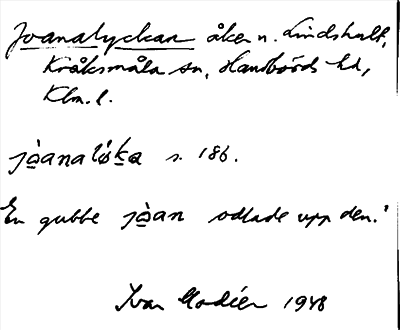 Joanalyckan åker n. Lindshult,
Kråksmåla sn, Handbörds hd,
Klm. l.
jo̱analø̱ḵa s. 186.
En gubbe jo̱an odlade upp den.
Ivar Modéer 1948